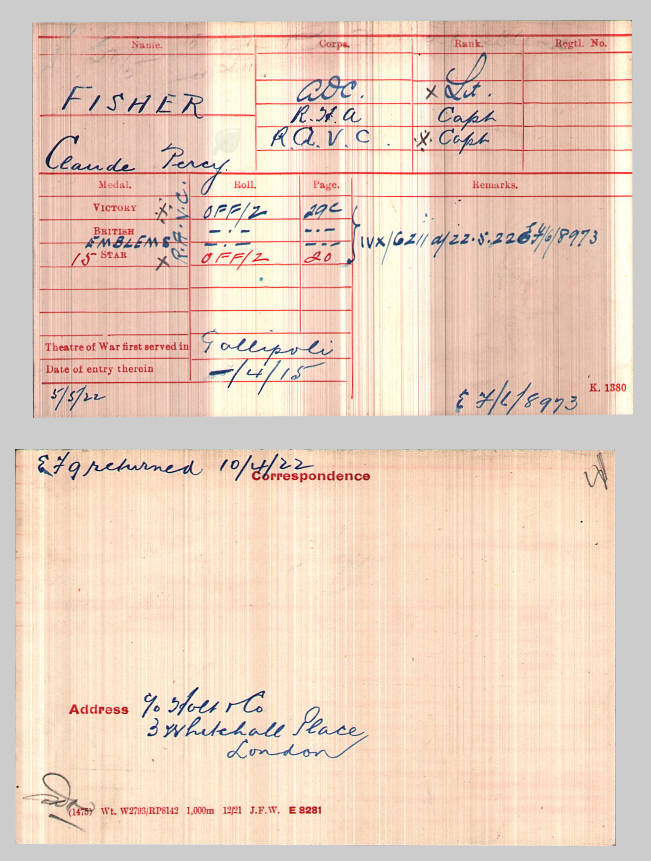 Name. Corps. Rank. Regtl. No.
FISHER AOC. X Lt.
R.H.A Capt
Claude Percy. R.A.V.C. X Capt
Medal. Roll. Page. Remarks.
VICTORY R.A.V.C. OFF/2 29C
BRITISH —·— —·—
EMBLEMS —·— —·— IVX/6211 d/22.5.22 E F/6/8973
15 STAR X OFF/2 20
Theatre of War first served in Gallipoli
Date of entry therein —/4/15
5/5/22 K. 1380
E F/6/8973
EF9 returned 10/4/22
Correspondence
Address c/o Holt & Co
3 Whitehall Place
London
(1475) Wt. W2793/RP8142 1,000m 12/21 J.F.W. E 8281